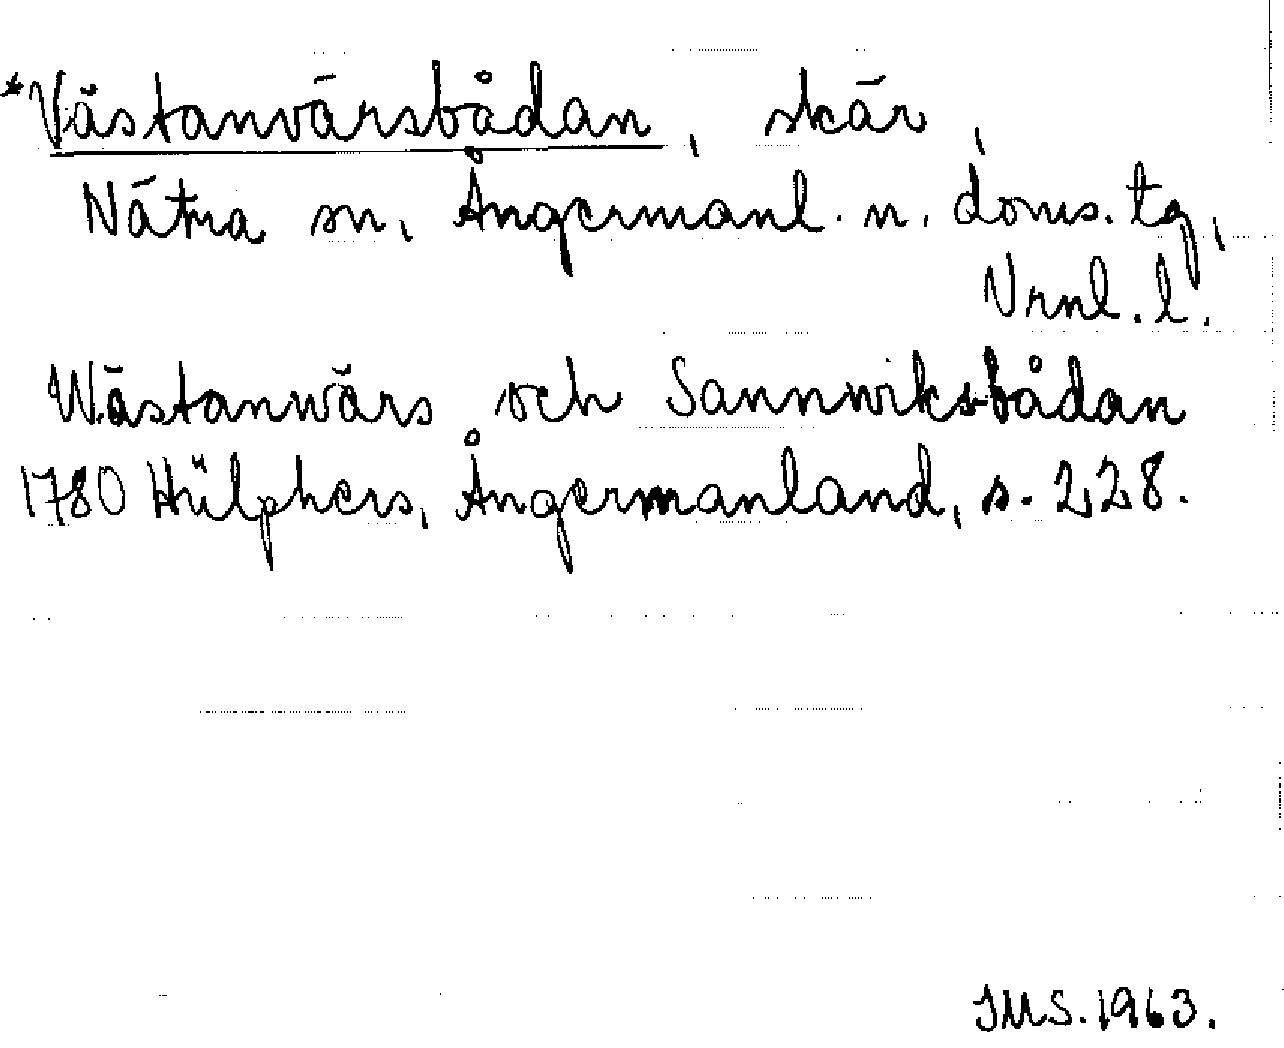 *Västanvärsbådan, skär,
Nätra sn, Ångermanl. n. doms. tg,
Vrnl. l.
Wästanwärs och Sannwiks-bådan
1780 Hülphers, Ångermanland, s. 228.
JMS. 1963.